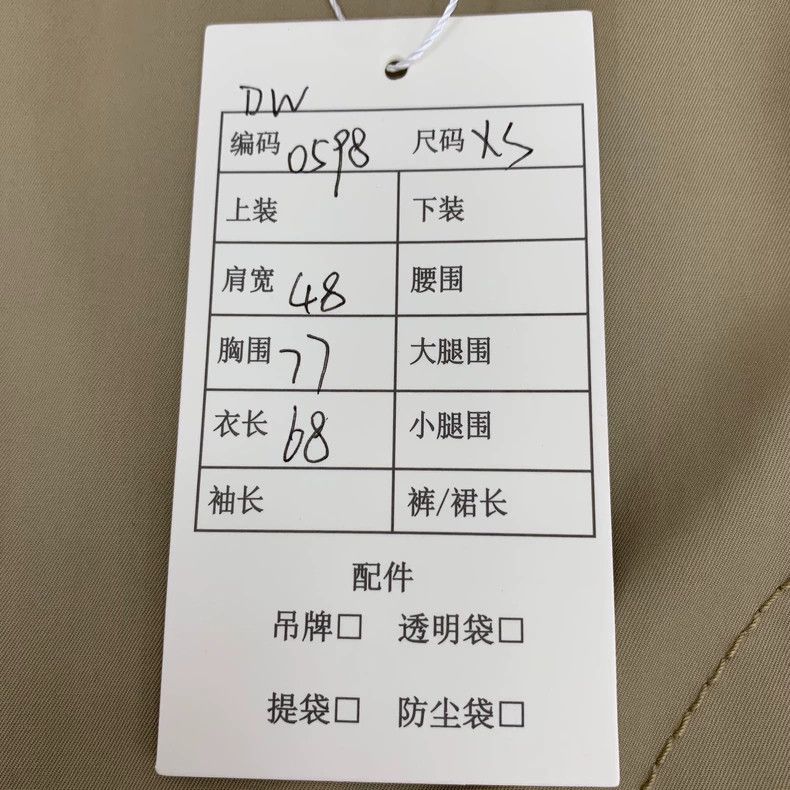 DW
编码 0598 尺码 XS
上装 下装
肩宽 48 腰围
胸围 77 大腿围
衣长 68 小腿围
袖长 裤/裙长
配件
吊牌□ 透明袋□
提袋□ 防尘袋□